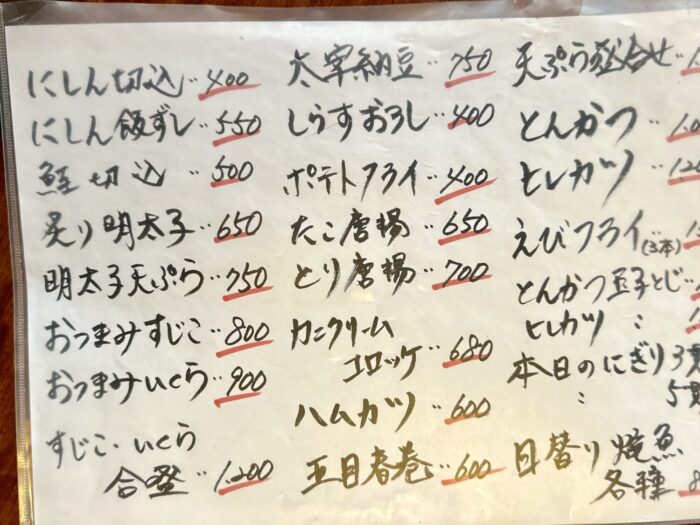 にしん切込‥400
にしん飯ずし‥550
鮭切込‥500
炙り明太子‥650
明太子天ぷら‥750
おつまみすじこ‥800
おつまみいくら‥900
すじこ・いくら
合盛‥1,200
太宰納豆‥750
しらすおろし‥400
ポテトフライ‥400
たこ唐揚‥650
とり唐揚‥700
カニクリーム
コロッケ‥680
ハムカツ‥600
五目春巻‥600
天ぷら盛合せ‥
とんかつ‥
ヒレカツ‥
えびフライ(3本)
とんかつ玉子とじ‥
ヒレカツ 〃
本日のにぎり3
〃 5
日替り焼魚
各種